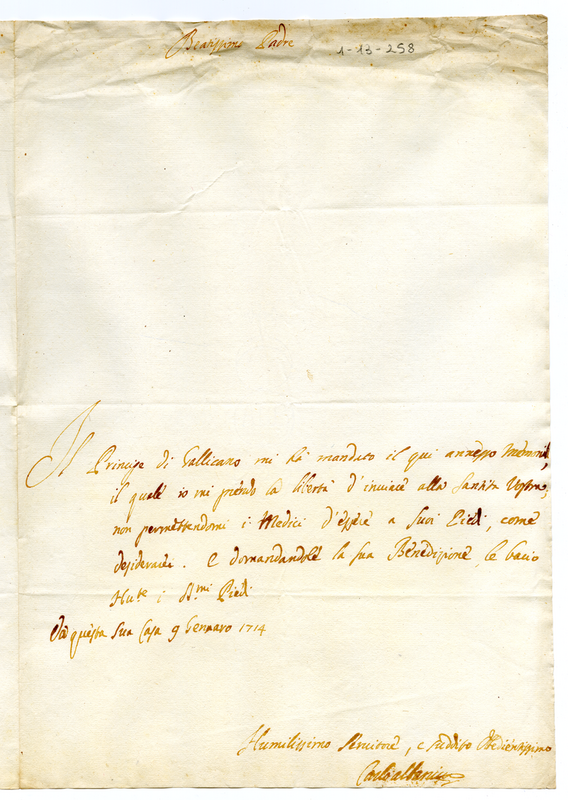 Beatissimo Padre
1-13-258
Il Principe di Gallicano mi hà mandato il qui annesso
il quale io mi prendo la libertà d'inviare alla Santità Vostra,
non permettendomi i Medici d'essere a Suoi Piedi, come
desiderarei. E domandandole la sua Benedizione, le bacio
Hu.te i S.mi Piedi
Da questa Sua Casa 9 Gennaro 1714
Humilissimo Servitore, e suddito Obedientissimo
Carlo Albani